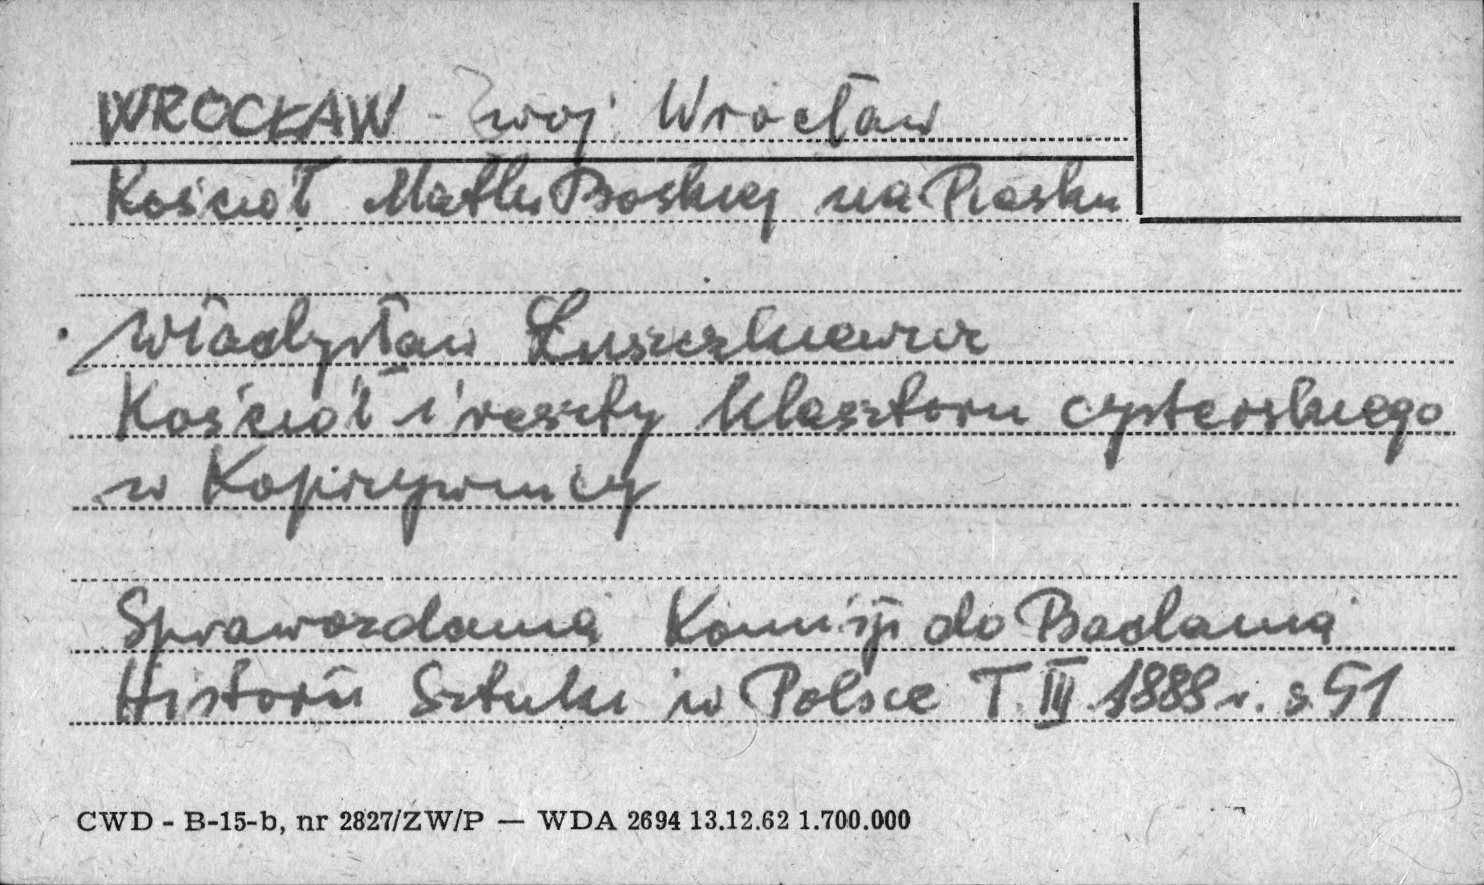 WROCŁAW - woj. Wrocław
Kościoł Matki Boskiej na Piasku
Władysław Łuszczkiewicz
Kościoł i reszty klasztoru cysterskiego
w Koprzywnicy
Sprawozdania Komisji do Badania
Historii Sztuki w Polsce T. III 1888 r. s. 51
CWD - B-15-b, nr 2827/ZW/P — WDA 2694 13.12.62 1.700.000